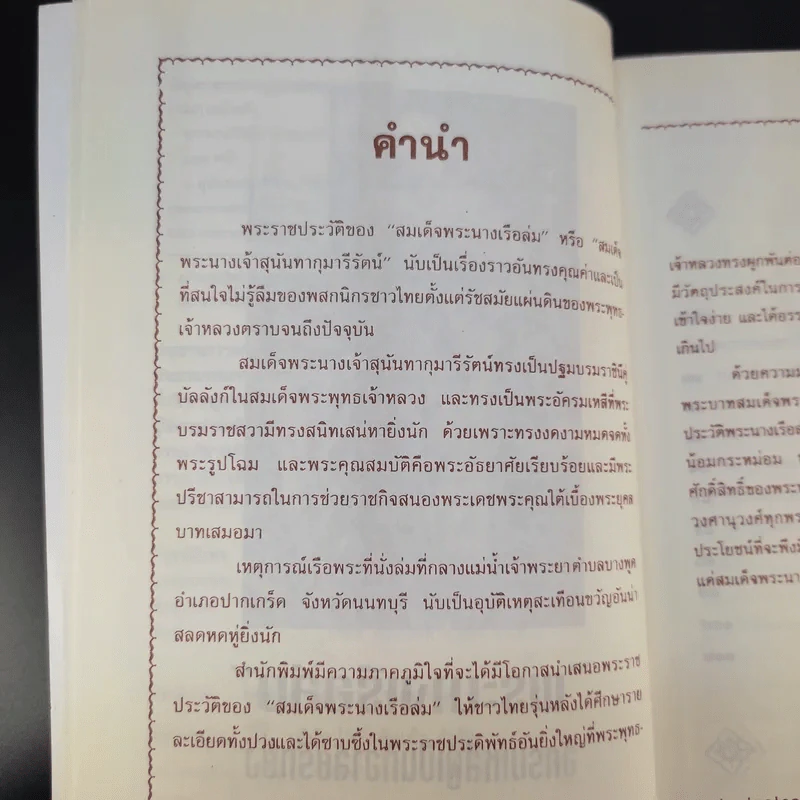 คำนำ
พระราชประวัติของ “สมเด็จพระนางเรือล่ม” หรือ “สมเด็จ
พระนางเจ้าสุนันทากุมารีรัตน์” นับเป็นเรื่องราวอันทรงคุณค่าและเป็น
ที่สนใจไม่รู้ลืมของพสกนิกรชาวไทยตั้งแต่รัชสมัยแผ่นดินของพระพุทธ-
เจ้าหลวงตราบจนถึงปัจจุบัน
สมเด็จพระนางเจ้าสุนันทากุมารีรัตน์ทรงเป็นปฐมบรมราชินีคู่
บัลลังก์ในสมเด็จพระพุทธเจ้าหลวง และทรงเป็นพระอัครมเหสีที่พระ
บรมราชสวามีทรงสนิทเสน่หายิ่งนัก ด้วยเพราะทรงงดงามหมดจดทั้ง
พระรูปโฉม และพระคุณสมบัติคือพระอัธยาศัยเรียบร้อยและมีพระ
ปรีชาสามารถในการช่วยราชกิจสนองพระเดชพระคุณใต้เบื้องพระยุคล
บาทเสมอมา
เหตุการณ์เรือพระที่นั่งล่มที่กลางแม่น้ำเจ้าพระยาตำบลบางพูด
อำเภอปากเกร็ด จังหวัดนนทบุรี นับเป็นอุบัติเหตุสะเทือนขวัญอันน่า
สลดหดหู่ยิ่งนัก
สำนักพิมพ์มีความภาคภูมิใจที่จะได้มีโอกาสนำเสนอพระราช
ประวัติของ “สมเด็จพระนางเรือล่ม” ให้ชาวไทยรุ่นหลังได้ศึกษาราย
ละเอียดทั้งปวงและได้ซาบซึ้งในพระราชประดิพัทธ์อันยิ่งใหญ่ที่พระพุทธ-
เจ้าหลวงทรงผูกพันต่อ
มีวัตถุประสงค์ในการ
เข้าใจง่าย และได้อรร
เกินไป
ด้วยความ
พระบาทสมเด็จพระ
ประวัติพระนางเรือล่
น้อมกระหม่อม
ศักดิ์สิทธิ์ของพระ
วงศานุวงศ์ทุกพร
ประโยชน์ที่จะพึงมี
แด่สมเด็จพระนา